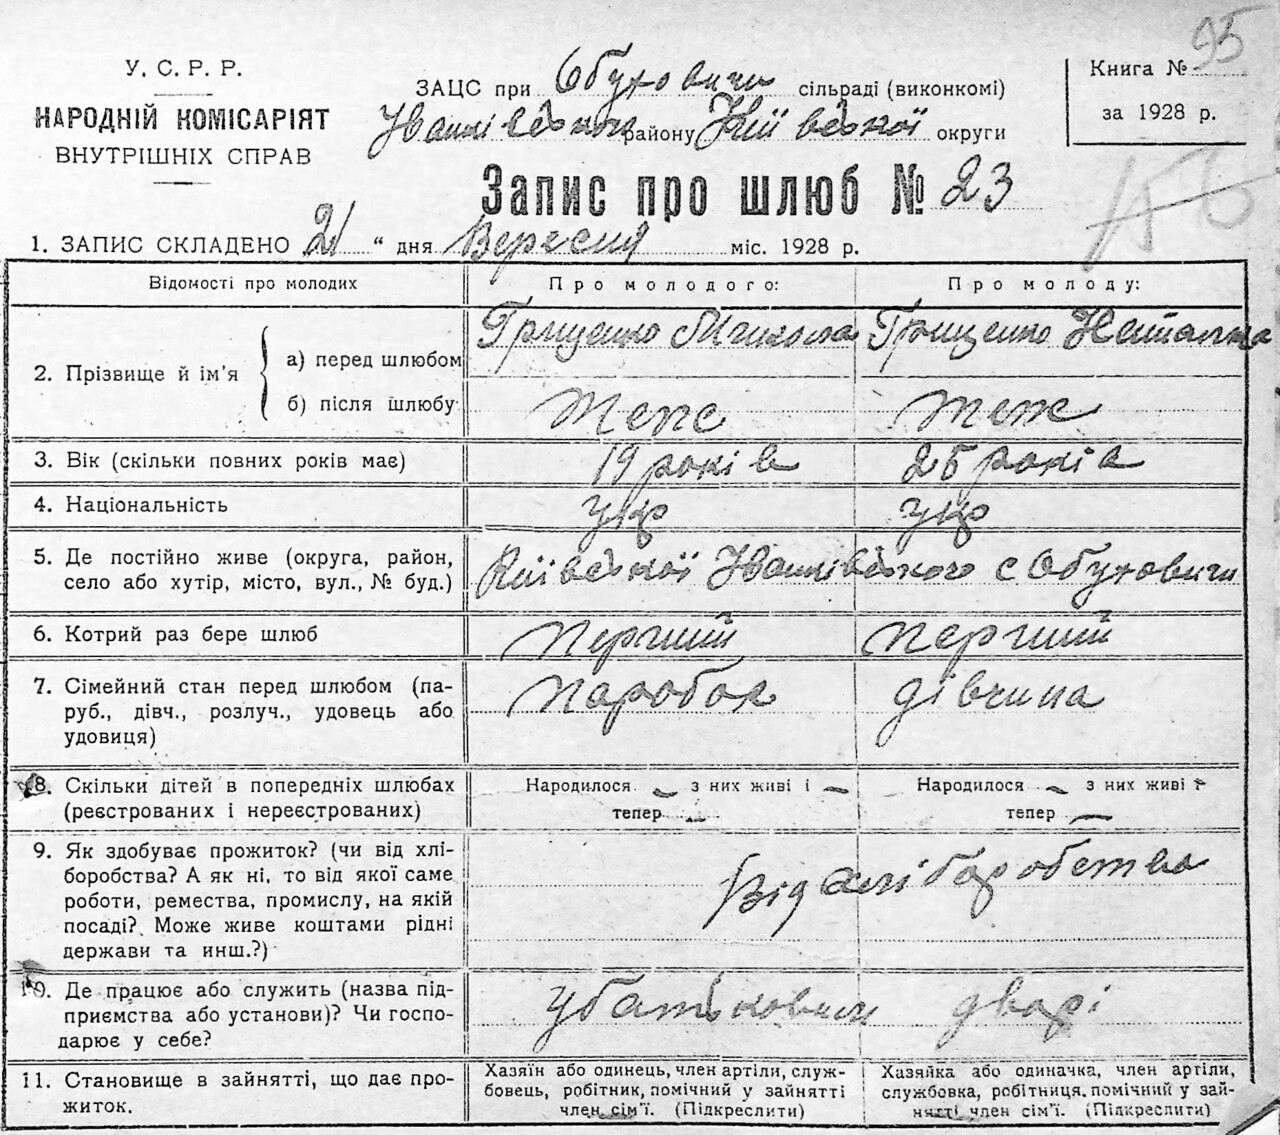 95
У. С. Р. Р.
НАРОДНІЙ КОМІСАРІЯТ
ВНУТРІШНІХ СПРАВ
ЗАЦС при Обуховичи сільраді (виконкомі)
Іванківського району Київської округи
Книга №
за 1928 р.
Запис про шлюб № 23
156
1. ЗАПИС СКЛАДЕНО 21 “ дня Вересня міс. 1928 р.
Відомості про молодих Про молодого: Про молоду:
2. Прізвище й ім'я
а) перед шлюбом Грищенко Микола Грищенко Наталка
б) після шлюбу Теж Теж
3. Вік (скільки повних років має) 19 років 25 років
4. Національність укр укр
5. Де постійно живе (округа, район, село або хутір, місто, вул., № буд.) Київської Іванківського с Обуховичи
6. Котрий раз бере шлюб перший перший
7. Сімейний стан перед шлюбом (па-
руб., дівч., розлуч., удовець або
удовиця)
паробок дівчина
8. Скільки дітей в попередніх шлюбах
(реєстрованих і нереєстрованих)
Народилося – з них живі і –
тепер –
Народилося – з них живі і –
тепер –
9. Як здобуває прожиток? (чи від хлі-
боробства? А як ні, то від якої саме
роботи, ремества, промислу, на якій
посаді? Може живе коштами рідні
держави та инш.?)
Від хліборобства
10. Де працює або служить (назва під-
приємства або установи)? Чи госпо-
дарює у себе?
У батьковим дворі
11. Становище в зайнятті, що дає про-
житок.
Хазяїн або одинець, член артіли, служ-
бовець, робітник, помічний у зайнятті
член сім'ї. (Підкреслити)
Хазяйка або одиначка, член артіли,
службовка, робітниця, помічний у зай-
нятті член сім'ї. (Підкреслити)